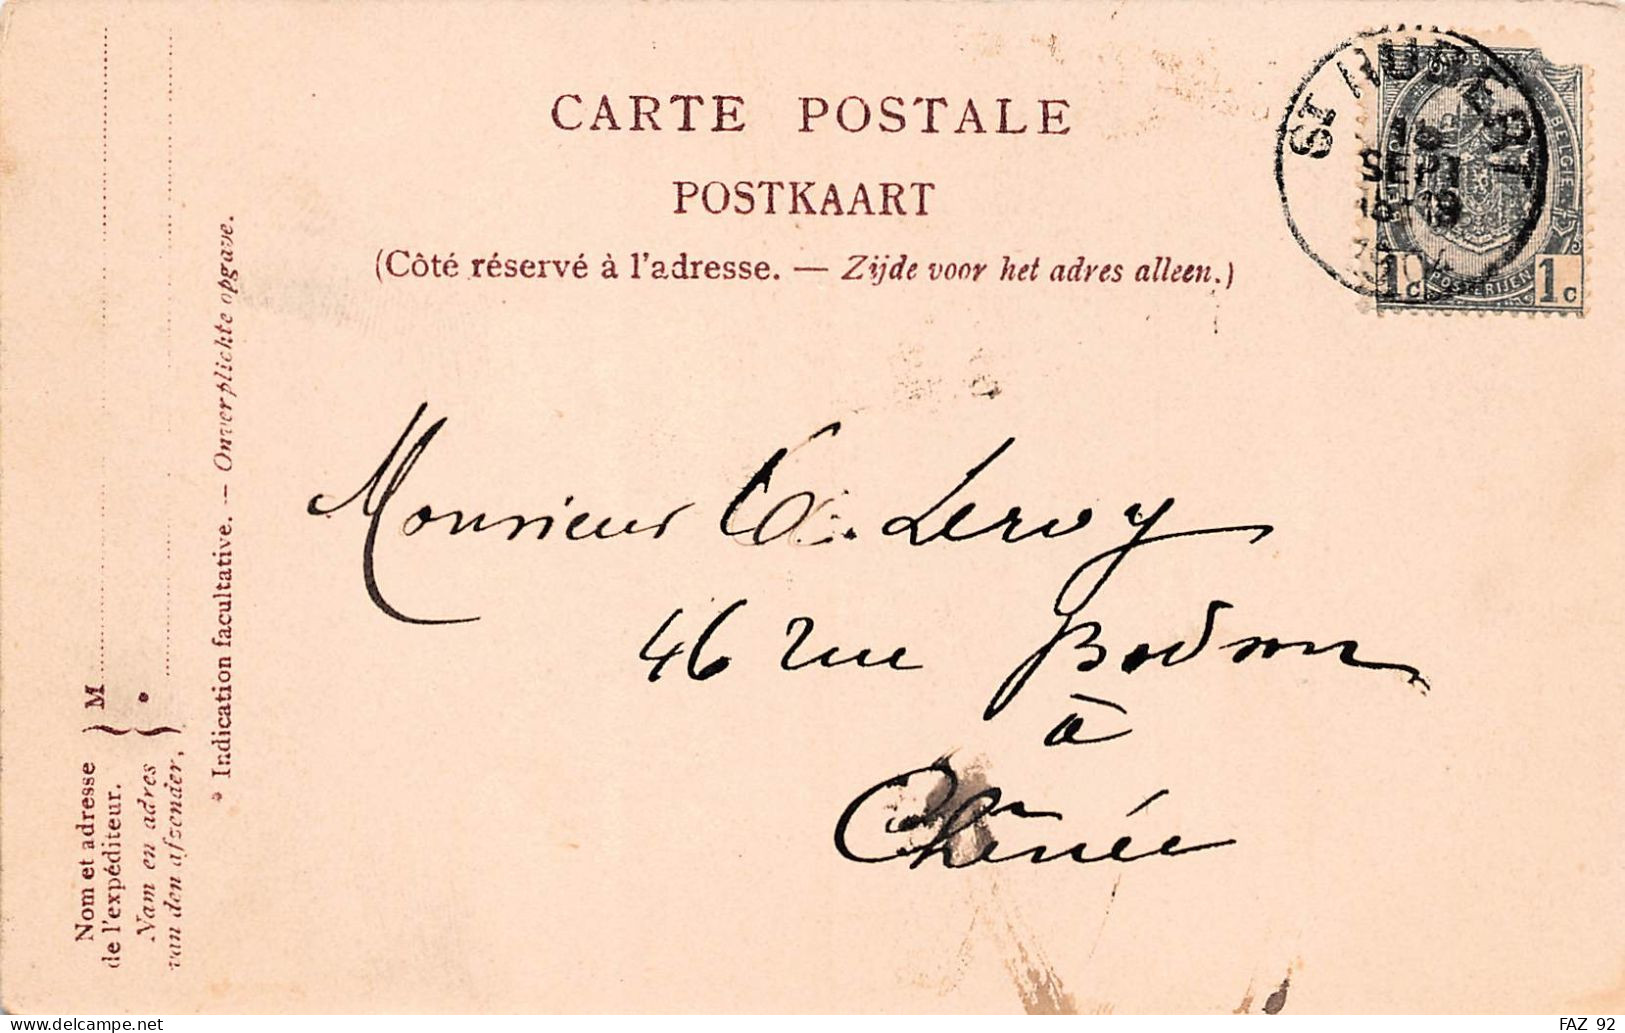 CARTE POSTALE
POSTKAART
(Côté réservé à l'adresse. — Zijde voor het adres alleen.)
ST HUBERT
SEPT
BELGIE
POSTERIJEN
1c 1c
Monsieur Leroy
46 rue
à
Chênée
Nom et adresse
de l'expéditeur. } M
Nam en adres
van den afzender, } *
* Indication facultative. — Onverplichte opgave.
FAZ 92